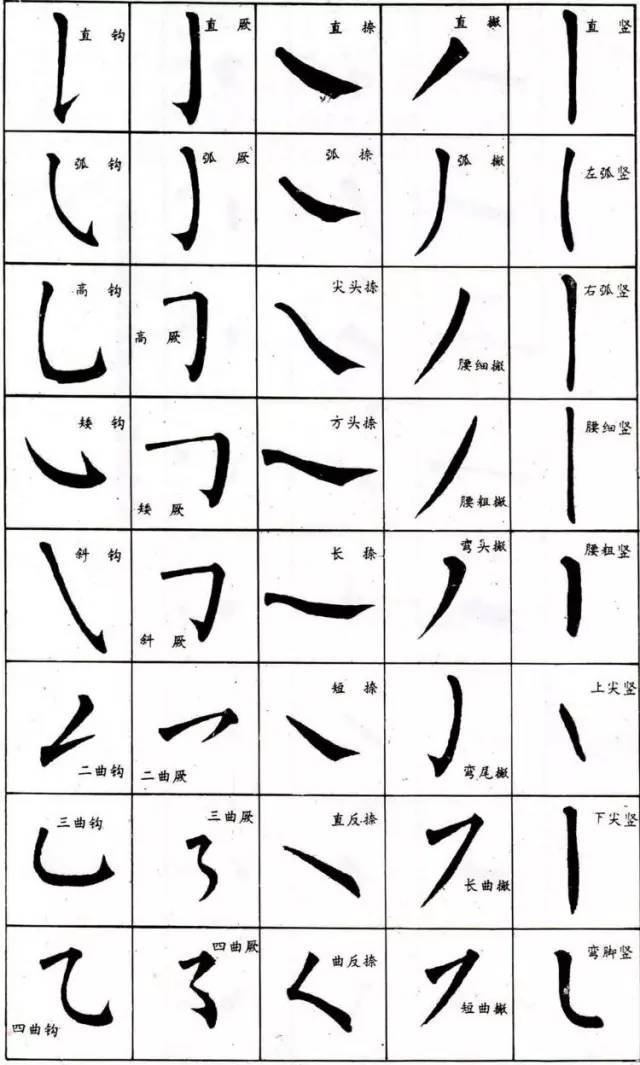 直钩
直厥
直捺
直撇
直竖
弧钩
弧厥
弧捺
弧撇
左弧竖
高钩
高厥
尖头捺
腰细撇
右弧竖
矮钩
矮厥
方头捺
腰粗撇
腰细竖
斜钩
斜厥
长捺
弯头撇
腰粗竖
二曲钩
二曲厥
短捺
弯尾撇
上尖竖
三曲钩
三曲厥
直反捺
长曲撇
下尖竖
四曲钩
四曲厥
曲反捺
短曲撇
弯脚竖